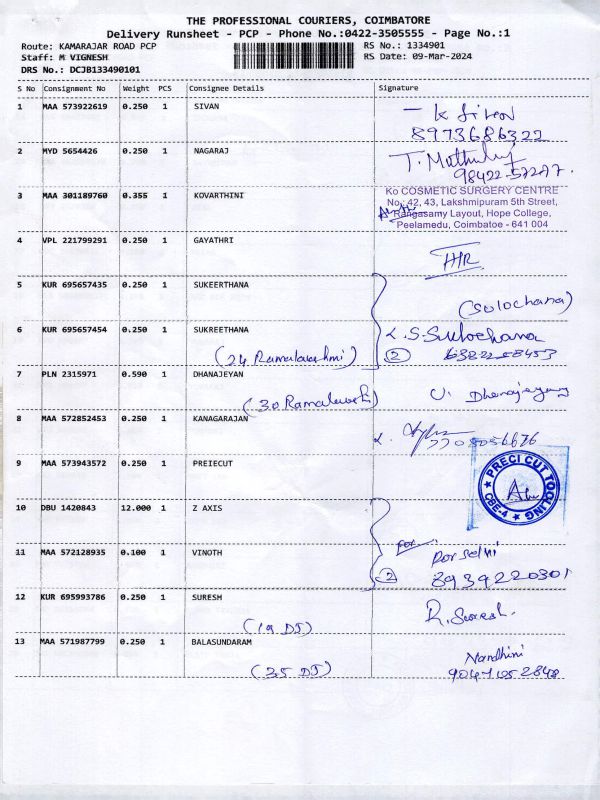 THE PROFESSIONAL COURIERS, COIMBATORE
Delivery Runsheet - PCP - Phone No.:0422-3505555 - Page No.:1
Route: KAMARAJAR ROAD PCP RS No.: 1334901
Staff: M VIGNESH RS Date: 09-Mar-2024
DRS No.: DCJB133490101
S No Consignment No Weight PCS Consignee Details Signature
1 MAA 573922619 0.250 1 SIVAN
8973686322
2 MYD 5654426 0.250 1 NAGARAJ
98422-57277.
3 MAA 301189760 0.355 1 KOVARTHINI
Ko COSMETIC SURGERY CENTRE
No: 42, 43, Lakshmipuram 5th Street,
Rangasamy Layout, Hope College,
Peelamedu, Coimbatoe - 641 004
4 VPL 221799291 0.250 1 GAYATHRI
5 KUR 695657435 0.250 1 SUKEERTHANA
(Sulochana)
6 KUR 695657454 0.250 1 SUKREETHANA S. Sulochana
(24 Ramalakshmi) 2
7 PLN 2315971 0.590 1 DHANAJEYAN
(30 Ramalaksh)
8 MAA 572852453 0.250 1 KANAGARAJAN
9 MAA 573943572 0.250 1 PREIECUT
PRECI CUT TOOLING
CBE-4
10 DBU 1420843 12.000 1 Z AXIS
for
11 MAA 572128935 0.100 1 VINOTH Porselvi
2 8939220301
12 KUR 695993786 0.250 1 SURESH R. Suresh.
(19 DJ)
13 MAA 571987799 0.250 1 BALASUNDARAM Nandhini
(35 DJ)